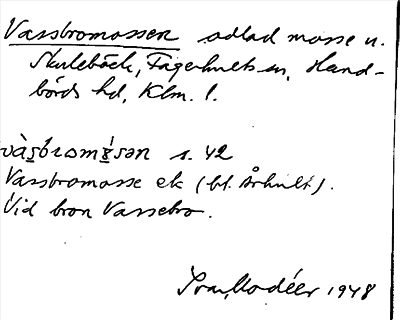 Vassbromossen odlad mosse n.
Skuleböck, Fagerhults sn, Hand-
börds hd, Klm. l.
vàsbromósən s. 42
Vassbromosse ek (bl. Århult).
Vid bron Vassebro.
Ivar Modéer 1948